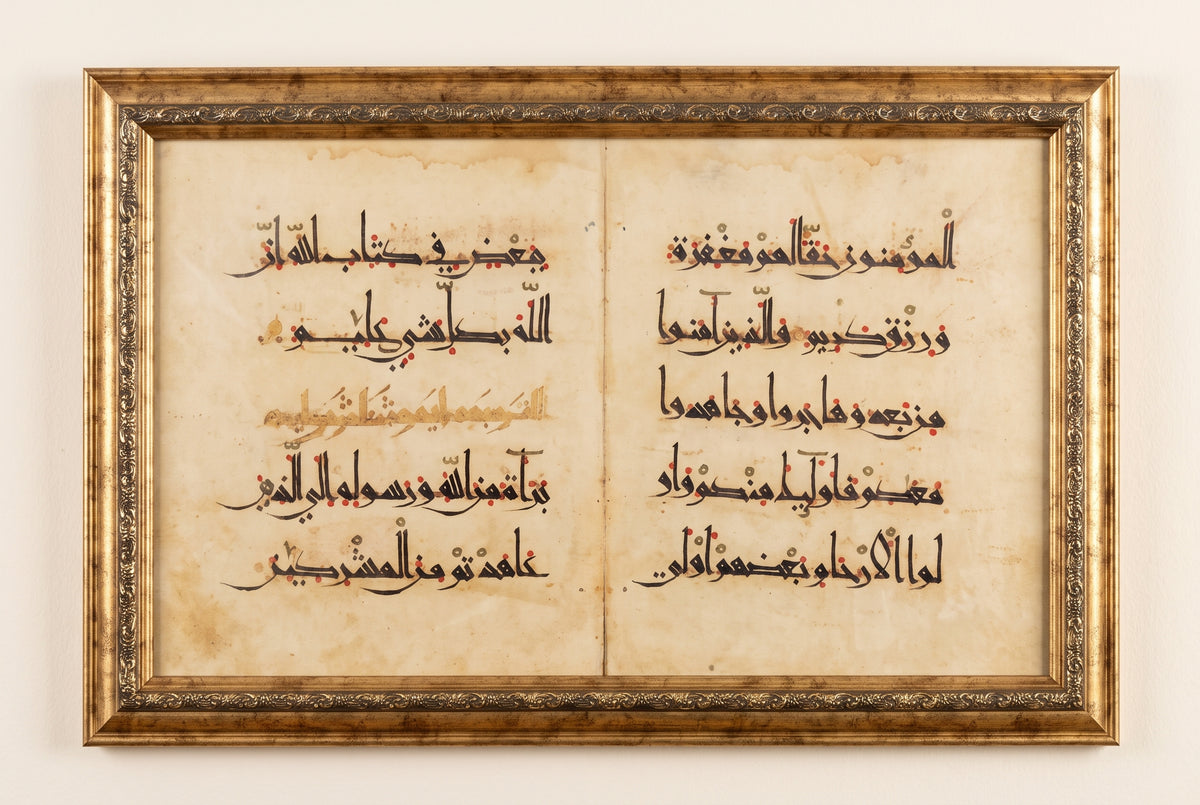 المؤمنون حقّا لهم مغفرة
ورزق كريم والّذين آمنوا
من بعد وهاجروا وجاهدوا
معكم فاولئك منكم واو
لوا الأرحام بعضهم اولى
ببعض في كتاب اللّه انّ
اللّه بكلّ شي عليم
برآة من اللّه ورسوله الى الّذين
عاهدتم من المشركين